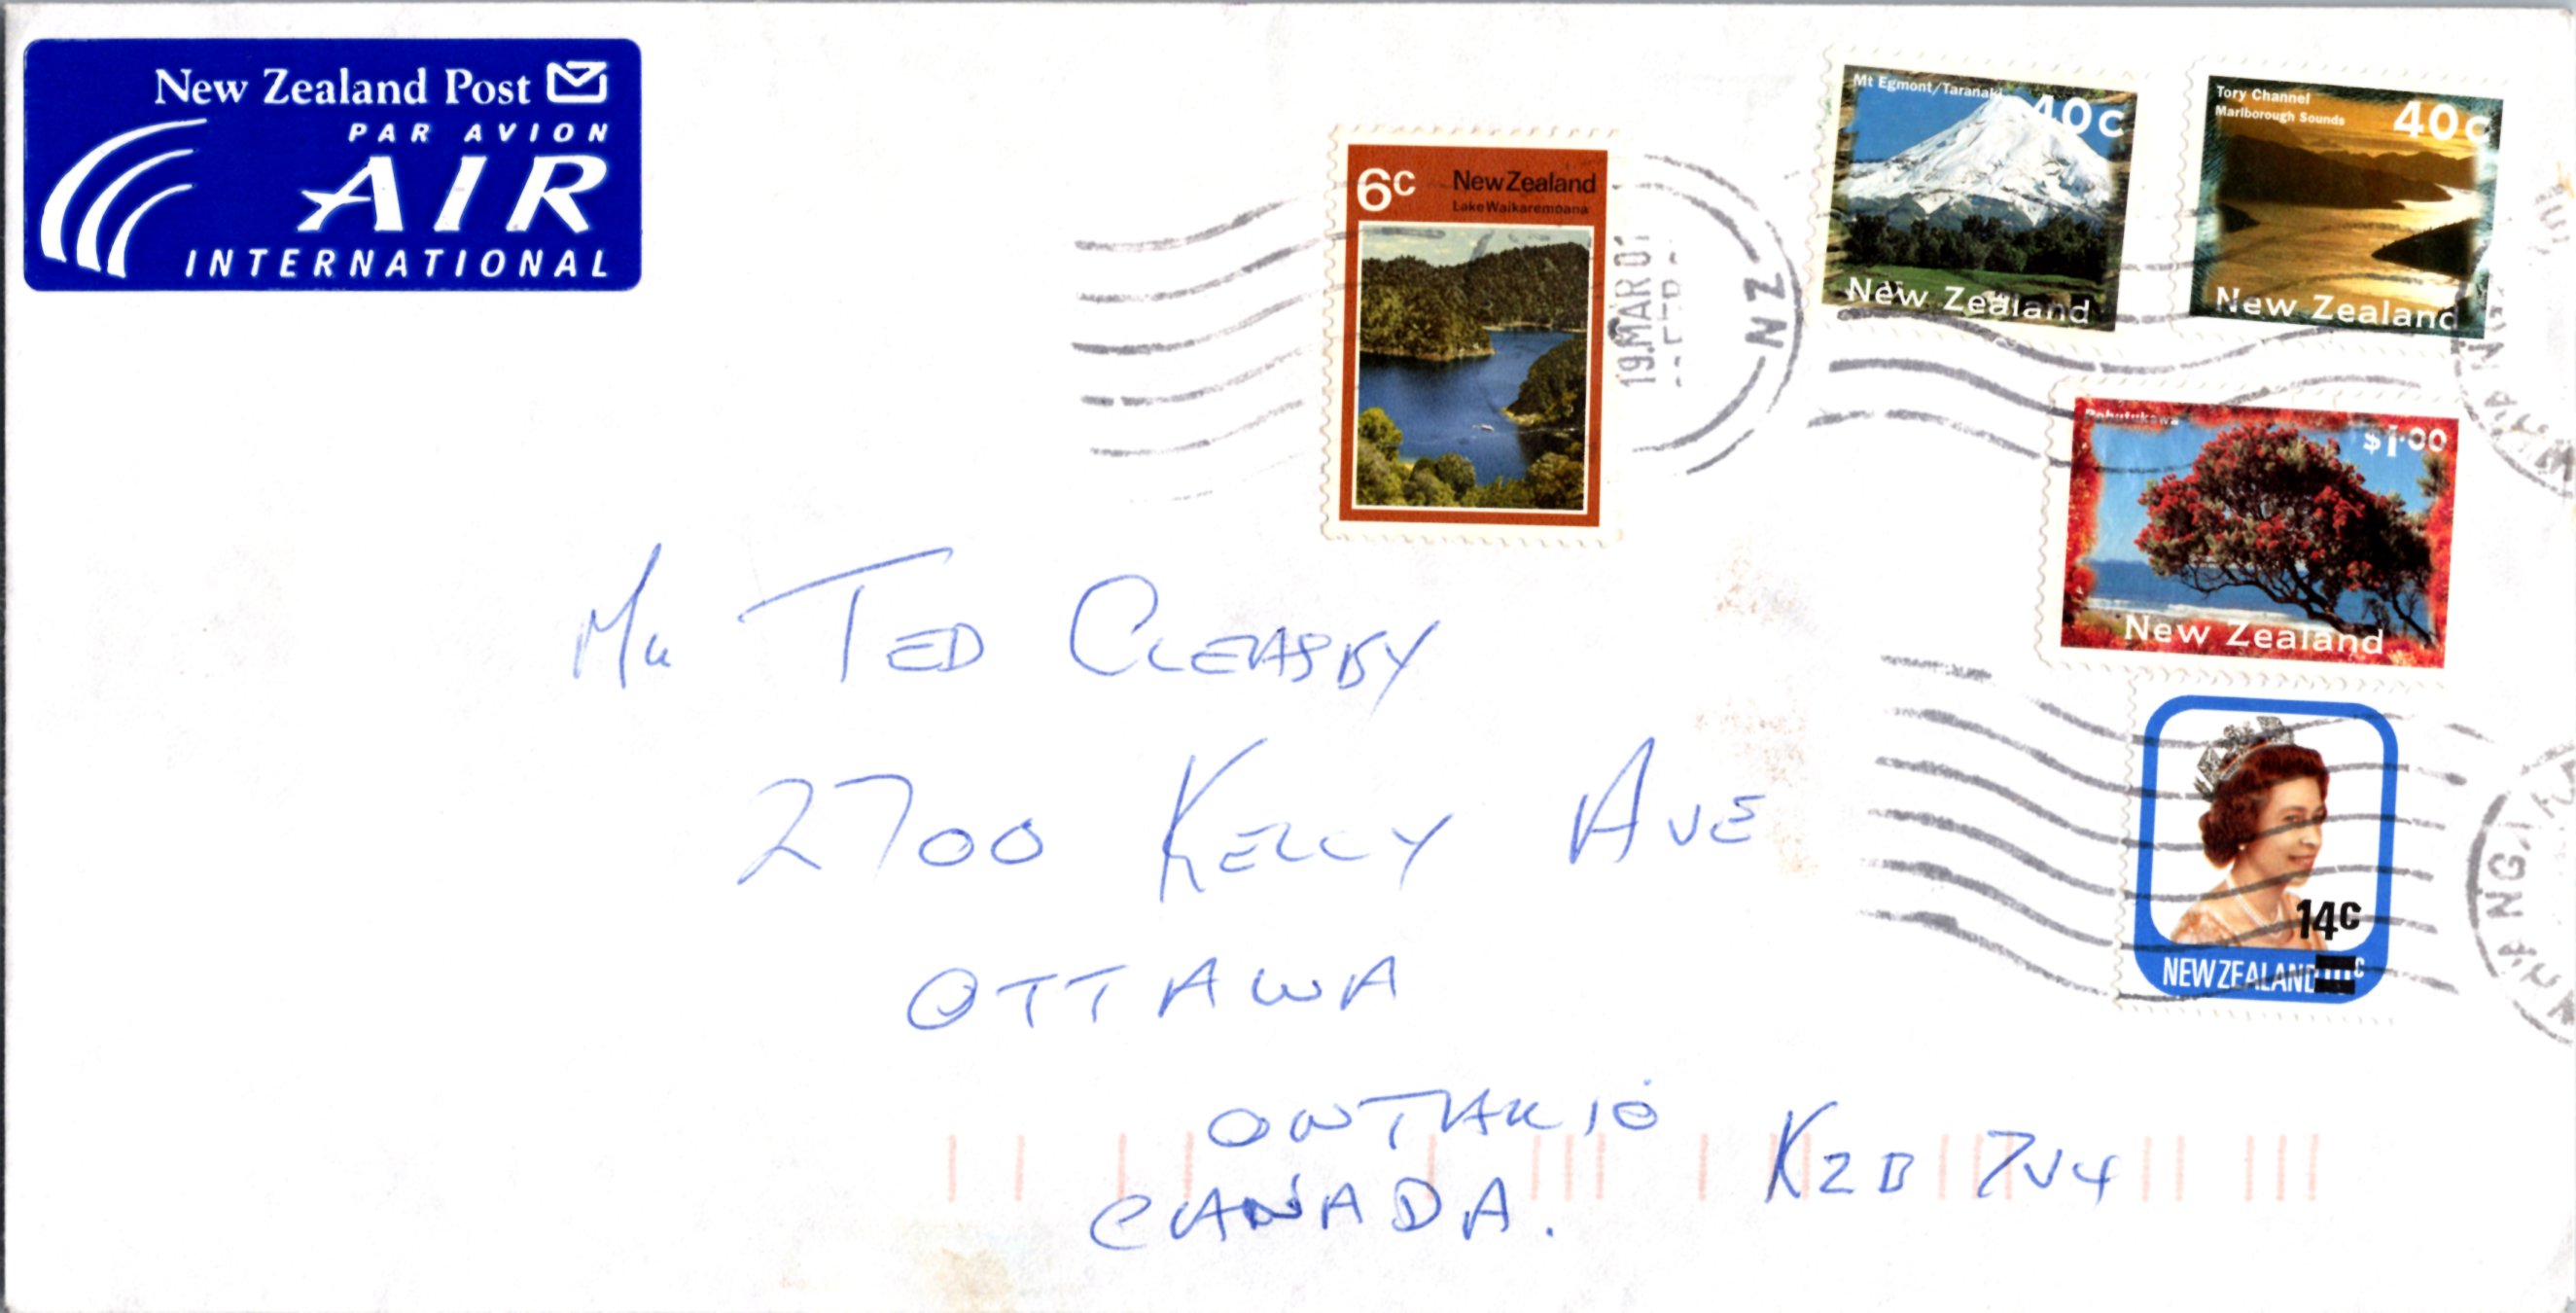 New Zealand Post
PAR AVION
AIR
INTERNATIONAL
6c
New Zealand
Lake Waikaremoana
19.MAR 01
NZ
Mt Egmont/Taranaki
40c
New Zealand
Tory Channel
Marlborough Sounds
40c
New Zealand
Pohutukawa
$1.00
New Zealand
14c
NEW ZEALAND
Mr TED CLEASBY
2700 KELLY AVE
OTTAWA
ONTARIO K2B 7V4
CANADA.